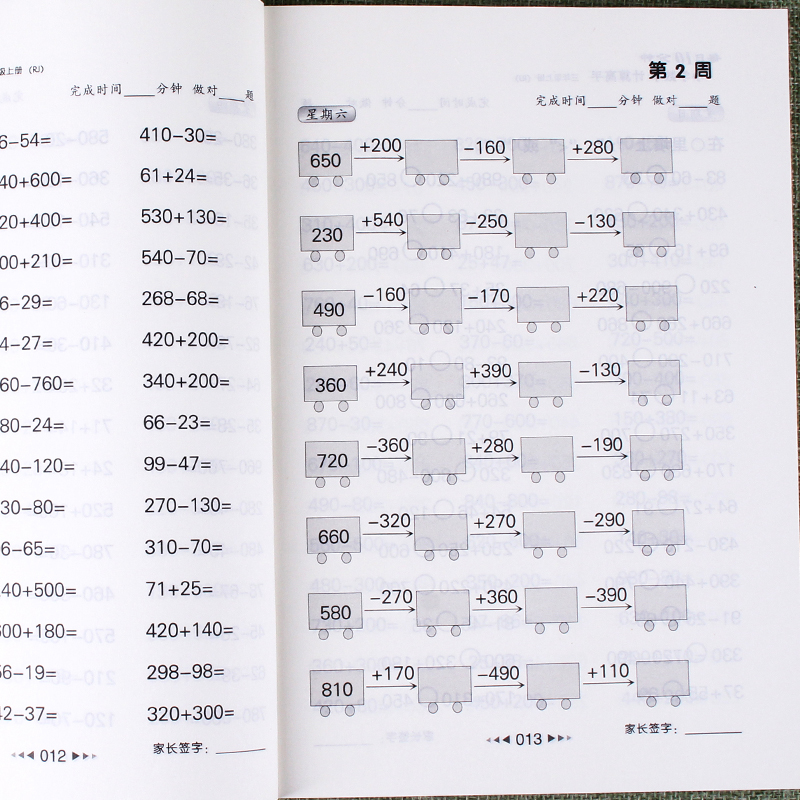 级上册（RJ）
完成时间____分钟 做对____题
6−54= 410−30=
40+600= 61+24=
20+400= 530+130=
00+210= 540−70=
6−29= 268−68=
4−27= 420+200=
60−760= 340+200=
80−24= 66−23=
40−120= 99−47=
30−80= 270−130=
6−65= 310−70=
40+500= 71+25=
600+180= 420+140=
56−19= 298−98=
42−37= 320+300=
家长签字：______
012
第2周
完成时间____分钟 做对____题
星期六
650 +200 −160 +280
230 +540 −250 −130
490 −160 −170 +220
360 +240 +390 −130
720 −360 +280 −190
660 −320 +270 −290
580 −270 +360 −390
810 +170 −490 +110
家长签字：______
013